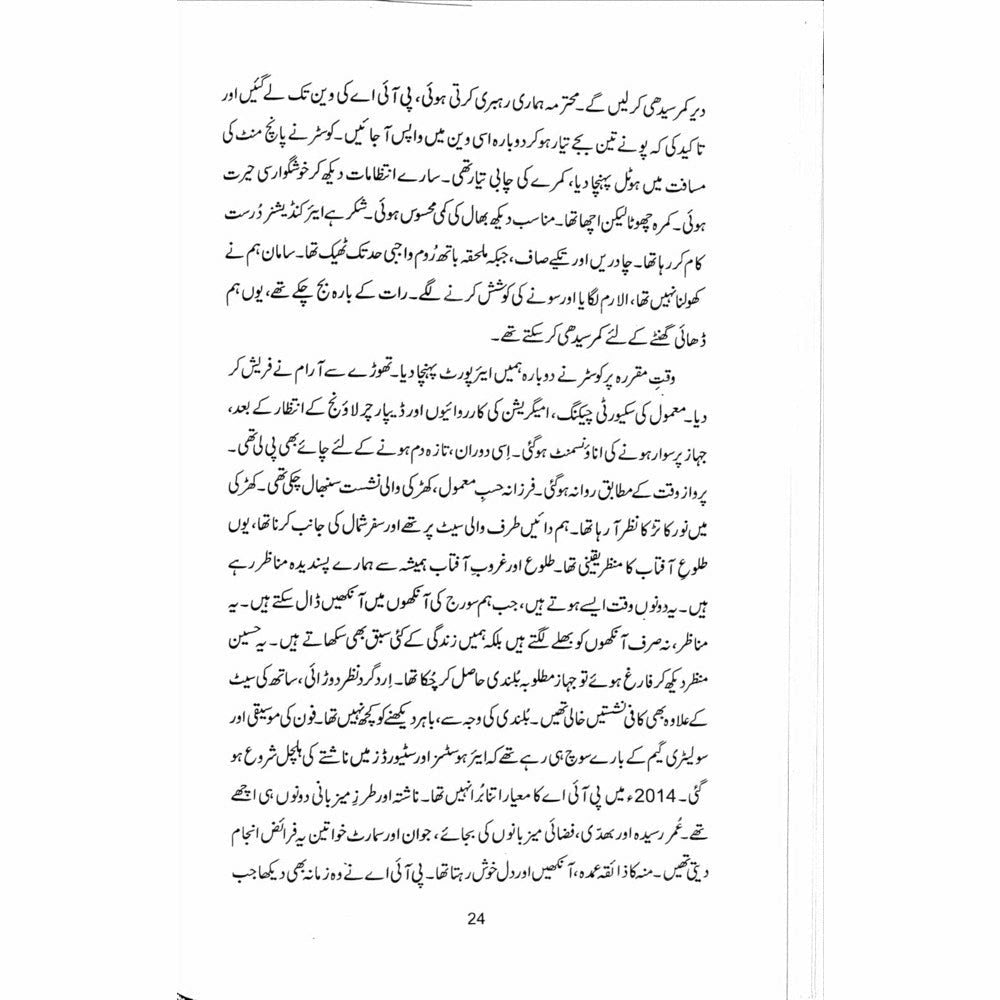 دیر کمر سیدھی کر لیں گے۔ محترمہ ہماری رہبری کرتی ہوئی، پی آئی اے کی وین تک لے گئیں اور
تاکید کی کہ پونے تین بجے تیار ہو کر دوبارہ اسی وین میں واپس آ جائیں۔ کوسٹر نے پانچ منٹ کی
مسافت میں ہوٹل پہنچا دیا، کمرے کی چابی تیار تھی۔ سارے انتظامات دیکھ کر خوشگوار سی حیرت
ہوئی۔ کمرہ چھوٹا لیکن اچھا تھا۔ مناسب دیکھ بھال کی کمی محسوس ہوئی۔ شکر ہے ایئر کنڈیشنر دُرست
کام کر رہا تھا۔ چادریں اور تکیے صاف، جبکہ ملحقہ باتھ رُوم واجبی حد تک ٹھیک تھا۔ سامان ہم نے
کھولنا نہیں تھا، الارم لگایا اور سونے کی کوشش کرنے لگے۔ رات کے بارہ بج چکے تھے، یوں ہم
ڈھائی گھنٹے کے لئے کمر سیدھی کر سکتے تھے۔
وقتِ مقررہ پر کوسٹر نے دوبارہ ہمیں ایئر پورٹ پہنچا دیا۔ تھوڑے سے آرام نے فریش کر
دیا۔ معمول کی سکیورٹی چیکنگ، امیگریشن کی کارروائیوں اور ڈیپارچر لاؤنج کے انتظار کے بعد،
جہاز پر سوار ہونے کی اناؤنسمنٹ ہو گئی۔ اِسی دوران، تازہ دم ہونے کے لئے چائے بھی پی لی تھی۔
پرواز وقت کے مطابق روانہ ہو گئی۔ فرزانہ حسبِ معمول، کھڑکی والی نشست سنبھال چکی تھی۔ کھڑکی
میں نور کا تڑکا نظر آ رہا تھا۔ ہم دائیں طرف والی سیٹ پر تھے اور سفر شمال کی جانب کرنا تھا، یوں
طلوعِ آفتاب کا منظر یقینی تھا۔ طلوع اور غروبِ آفتاب ہمیشہ سے ہمارے پسندیدہ مناظر رہے
ہیں۔ یہ دونوں وقت ایسے ہوتے ہیں، جب ہم سورج کی آنکھوں میں آنکھیں ڈال سکتے ہیں۔ یہ
مناظر، نہ صرف آنکھوں کو بھلے لگتے ہیں بلکہ ہمیں زندگی کے کئی سبق بھی سکھاتے ہیں۔ یہ حسین
منظر دیکھ کر فارغ ہوئے تو جہاز مطلوبہ بُلندی حاصل کر چُکا تھا۔ اِردگرد نظر دوڑائی، ساتھ کی سیٹ
کے علاوہ بھی کافی نشستیں خالی تھیں۔ بُلندی کی وجہ سے، باہر دیکھنے کو کچھ نہیں تھا۔ فون کی موسیقی اور
سولیٹری گیم کے بارے سوچ ہی رہے تھے کہ ایئر ہوسٹسز اور سٹیورڈز میں ناشتے کی ہلچل شروع ہو
گئی۔ 2014ء میں پی آئی اے کا معیار اتنا بُرا نہیں تھا۔ ناشتہ اور طرزِ میزبانی دونوں ہی اچھے
تھے۔ عُمر رسیدہ اور بھدّی، فضائی میزبانوں کی بجائے، جوان اور سمارٹ خواتین یہ فرائض انجام
دیتی تھیں۔ منہ کا ذائقہ عمدہ، آنکھیں اور دل خوش رہتا تھا۔ پی آئی اے نے وہ زمانہ بھی دیکھا جب
24